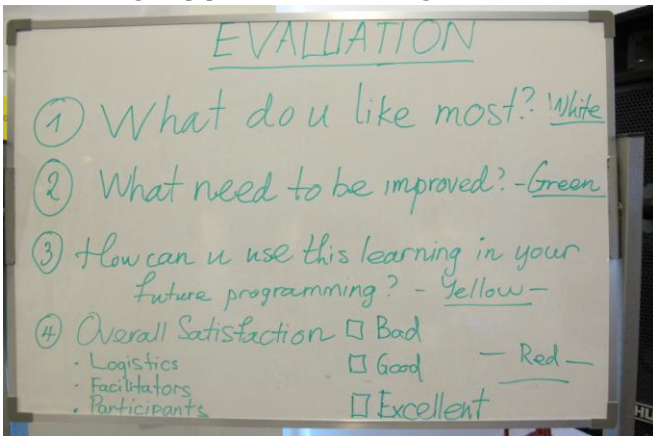 EVALUATION
① What do u like most? White
② What need to be improved? - Green
③ How can u use this learning in your
future programming? - Yellow -
④ Overall Satisfaction □ Bad
· Logistics □ Good - Red -
· Facilitators
· Participants □ Excellent
HU